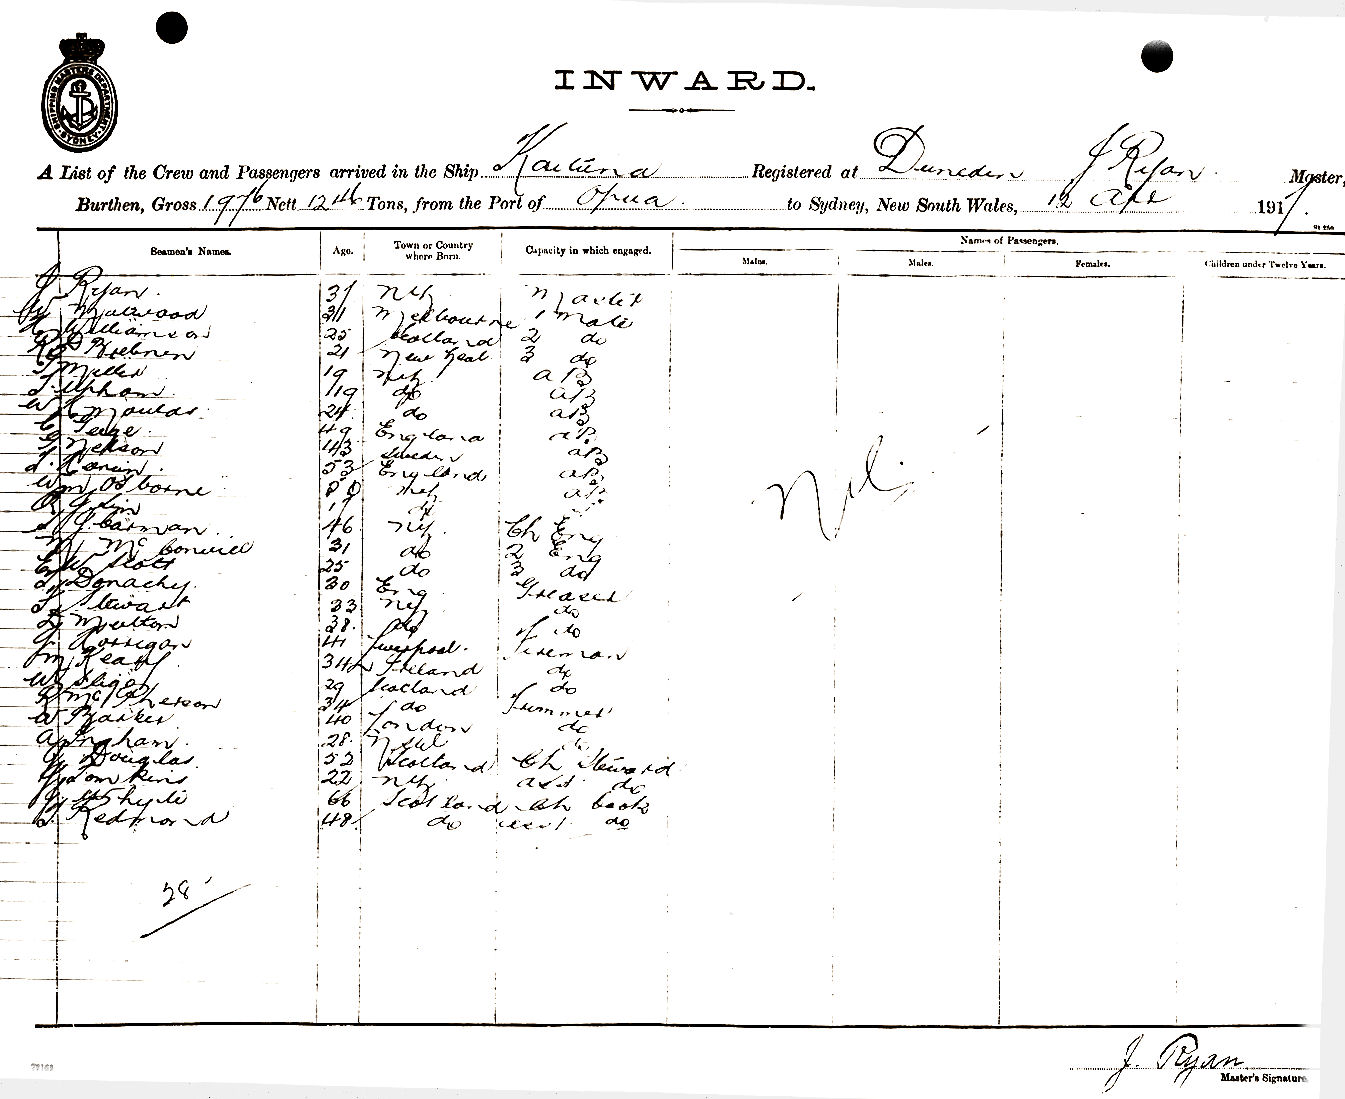 SHIPPING MASTERS DEPARTMENT SYDNEY
INWARD.
A List of the Crew and Passengers arrived in the Ship Kaituna Registered at Dunedin J Ryan Master,
Burthen, Gross 1976 Nett 1246 Tons, from the Port of Opua to Sydney, New South Wales, 12 Apl 1917.
Seamen's Names. Age. Town or Country where Born. Capacity in which engaged. Names of Passengers.
Males. Males. Females. Children under Twelve Years.
J Ryan. 37 NZ Master
Malwood 31 Melbourne 1 Mate
Williamson 25 Scotland 2 do
21 New Zeal 3 do
J Miller 19 NZ AB
Upham 19 do AB
W Moulds 24 do AB
49 England AB
Nelson 43 Sweden AB
53 England AB
Wm Osborne NZ AB
do
J Carman 46 NZ Ch Eng
31 do 2 Eng
E W Scott 25 do 3 do
Donachy 30 Eng Greaser
Stewart 33 NZ do
Moulton 38 do do
J Corrigan 41 Liverpool. Fireman
34 Ireland do
W Sligo 29 Scotland do
R McPherson 34 do Trimmer
W Barker 40 London do
A Ingham 28 do
Douglas 52 Scotland Ch Steward
H Tomkins 22 NZ asst do
Whyte 66 Scotland Ch Cook
Redmond 48 do asst do
Nil
28
J. Ryan
Master's Signature.